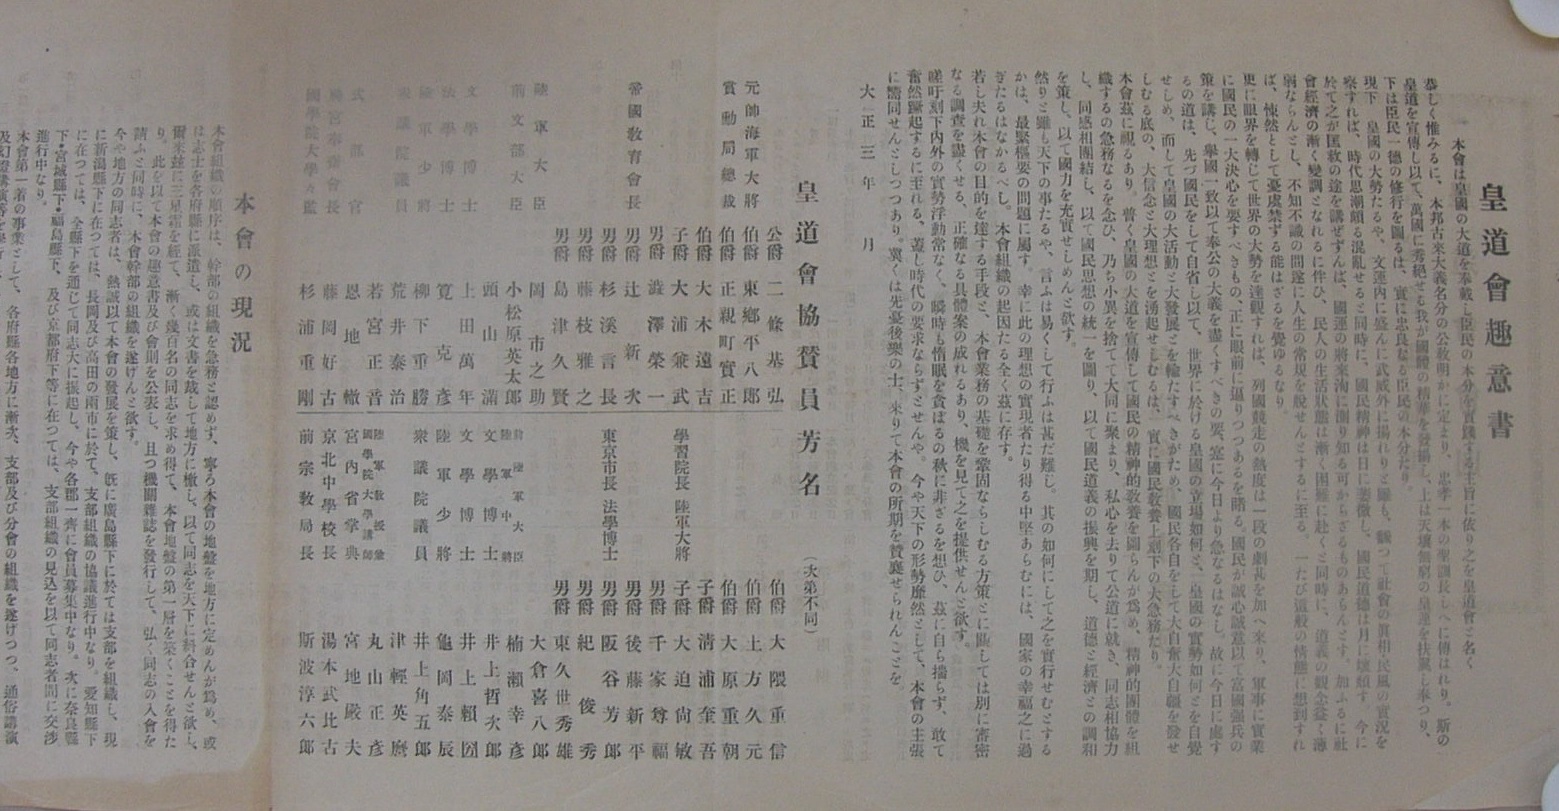 皇道會趣意書
本會は皇國の大道を奉戴し臣民の本分を實踐する主旨に依り之を皇道會と名く
恭しく惟みるに、本邦古來大義名分の公敎明かに定まり、忠孝一本の聖訓長しへに傳はれり。斯の
皇道を宣傳し以て、萬國に秀絕せる我が國體の精華を發揚し、上は天壤無窮の皇運を扶翼し奉つり、
下は臣民一德の修行を圖るは、實に忠良なる臣民の本分たり。
現下 皇國の大勢たるや、文運內に盛んに武威外に揚れりと雖も、飜つて社會の眞相民風の實況を
察すれば、時代思潮頗る混亂せると同時に、國民精神は日に萎微し、國民道德は月に壞頽す。今に
於て之が匡救の途を講ぜずんば、國運の將來洵に測り知る可からざるものあらんとす。加ふるに社
會經濟の漸く變調となれるに伴ひ、民人の生活狀態は漸く困難に赴くと同時に、道義の觀念益〻薄
弱ならんとし、不知不識の間遂に人生の常規を脫せんとするに至る。一たび這般の情態に想到すれ
ば、悚然として憂虞禁ずる能はざるを覺ゆるなり。
更に眼界を轉じて世界の大勢を達觀すれば、列國競走の熱度は一段の劇甚を加へ來り、軍事に實業
に國民の一大決心を要すべきもの、正に眼前に逼りつつあるを睹る。國民が誠心誠意以て富國强兵の
策を講じ、擧國一致以て奉公の大義を盡くすべきの要、寔に今日より急なるはなし。故に今日に處す
るの道は、先づ國民をして自省し以て、世界に於ける皇國の立場如何と、皇國の實勢如何とを自覺
せしめ、而して皇國の大活動と大發展とを輸たすべきがため、國民各自をして大自奮大自疆を發せ
しむる底の、大信念と大理想とを湧起せしむるは、實に國民敎養上刻下の大急務たり。
本會茲に視るあり、普く皇國の大道を宣傳して國民の精神的敎養を圖らんが爲め、精神的團體を組
織するの急務なるを念ひ、乃ち小異を捨てて大同に聚まり、私心を去りて公道に就き、同志相協力
し、同感相團結し、以て國民思想の統一を圖り、以て國民道義の振興を期し、道德と經濟との調和
を策し、以て國力を充實せしめんと欲す。
然りと雖も天下の事たるや、言ふは易くして行ふは甚だ難し。其の如何にして之を實行せむとする
かは、最緊樞要の問題に屬す。幸に此の理想の實現者たり得る中堅あらむには、國家の幸福之に過
ぎたるはなかるべし。本會組織の起因たる全く茲に存す。
若し夫れ本會の目的を達する手段と、本會業務の基礎を鞏固ならしむる方策とに關しては別に審密
なる調査を盡くせる、正確なる具體案の成れるあり、機を見て之を提供せんと欲す。
嗟吁刻下內外の實勢浮動常なく、瞬時も惰眠を貪ぼるの秋に非ざるを想ひ、茲に自ら揣らず、敢て
奮然蹶起するに至れる、蓋し時代の要求ならずとせんや。今や天下の形勢靡然として、本會の主張
に嚮同せんとしつつあり。冀くは先憂後樂の士、來りて本會の所期を贊襄せられんことを。
大正三年 月
皇道會協贊員芳名 (次第不同)
公爵 二條基弘 伯爵 大隈重信
元帥海軍大將 伯爵 東鄕平八郎 伯爵 土方久元
賞勳局總裁 伯爵 正親町實正 伯爵 大原重朝
伯爵 大木遠吉 子爵 淸浦奎吾
子爵 大浦兼武 學習院長 陸軍大將 子爵 大迫尙敏
男爵 澁澤榮一 男爵 千家尊福
帝國敎育會長 男爵 辻新次 男爵 後藤新平
男爵 杉溪言長 東京市長 法學博士 男爵 阪谷芳郎
男爵 藤枝雅之 男爵 紀俊秀
男爵 島津久賢 男爵 東久世秀雄
陸軍大臣 岡市之助 大倉喜八郎
前文部大臣 小松原英太郎 前陸軍大臣 陸軍中將 楠瀨幸彥
頭山滿 文學博士 井上哲次郎
文學博士 上田萬年 文學博士 井上賴圀
法學博士 筧克彥 陸軍少將 龜岡泰辰
陸軍少將 柳下重勝 衆議院議員 井上角五郎
衆議院議員 荒井泰治 津輕英麿
若宮正音 丸山正彥
式部官 恩地轍 陸軍敎授兼 國學院大學講師 宮內省掌典 宮地嚴夫
神宮奉齋會長 藤岡好古 京北中學校長 湯本武比古
國學院大學々監 杉浦重剛 前宗敎局長 斯波淳六郎
本會の現況
本會組織の順序は、幹部の組織を急務と認めず、寧ろ本會の地盤を地方に定めんが爲め、或
は志士を各府縣に派遣し、或は文書を裁して地方に檄し、以て同志を天下に糾合せんと欲し、
爾來茲に三星霜を經て、漸く幾百名の同志を求め得て、本會地盤の第一層を築くことを得た
り。此を以て本會の趣意書及び會則を公表し、且つ機關雜誌を發行して、弘く同志の入會を
請ふと同時に、本會幹部の組織を遂げんと欲す。
今や地方の同志者は、熱誠以て本會の發展を策し、旣に廣島縣下に於ては支部を組織し、現
に新潟縣下に在つては、長岡及び高田の兩市に於て、支部組織の協議進行中なり。愛知縣下
に在つては、全縣下を通じて同志大に振起し、今や各郡一齊に會員募集中なり。次に奈良縣
下・宮城縣下・福島縣下、及び京都府下等に在つては、支部組織の見込を以て同志者間に交涉
進行中なり。
本會第一着の事業として、各府縣各地方に漸次、支部及び分會の組織を遂げつつ、通俗講演